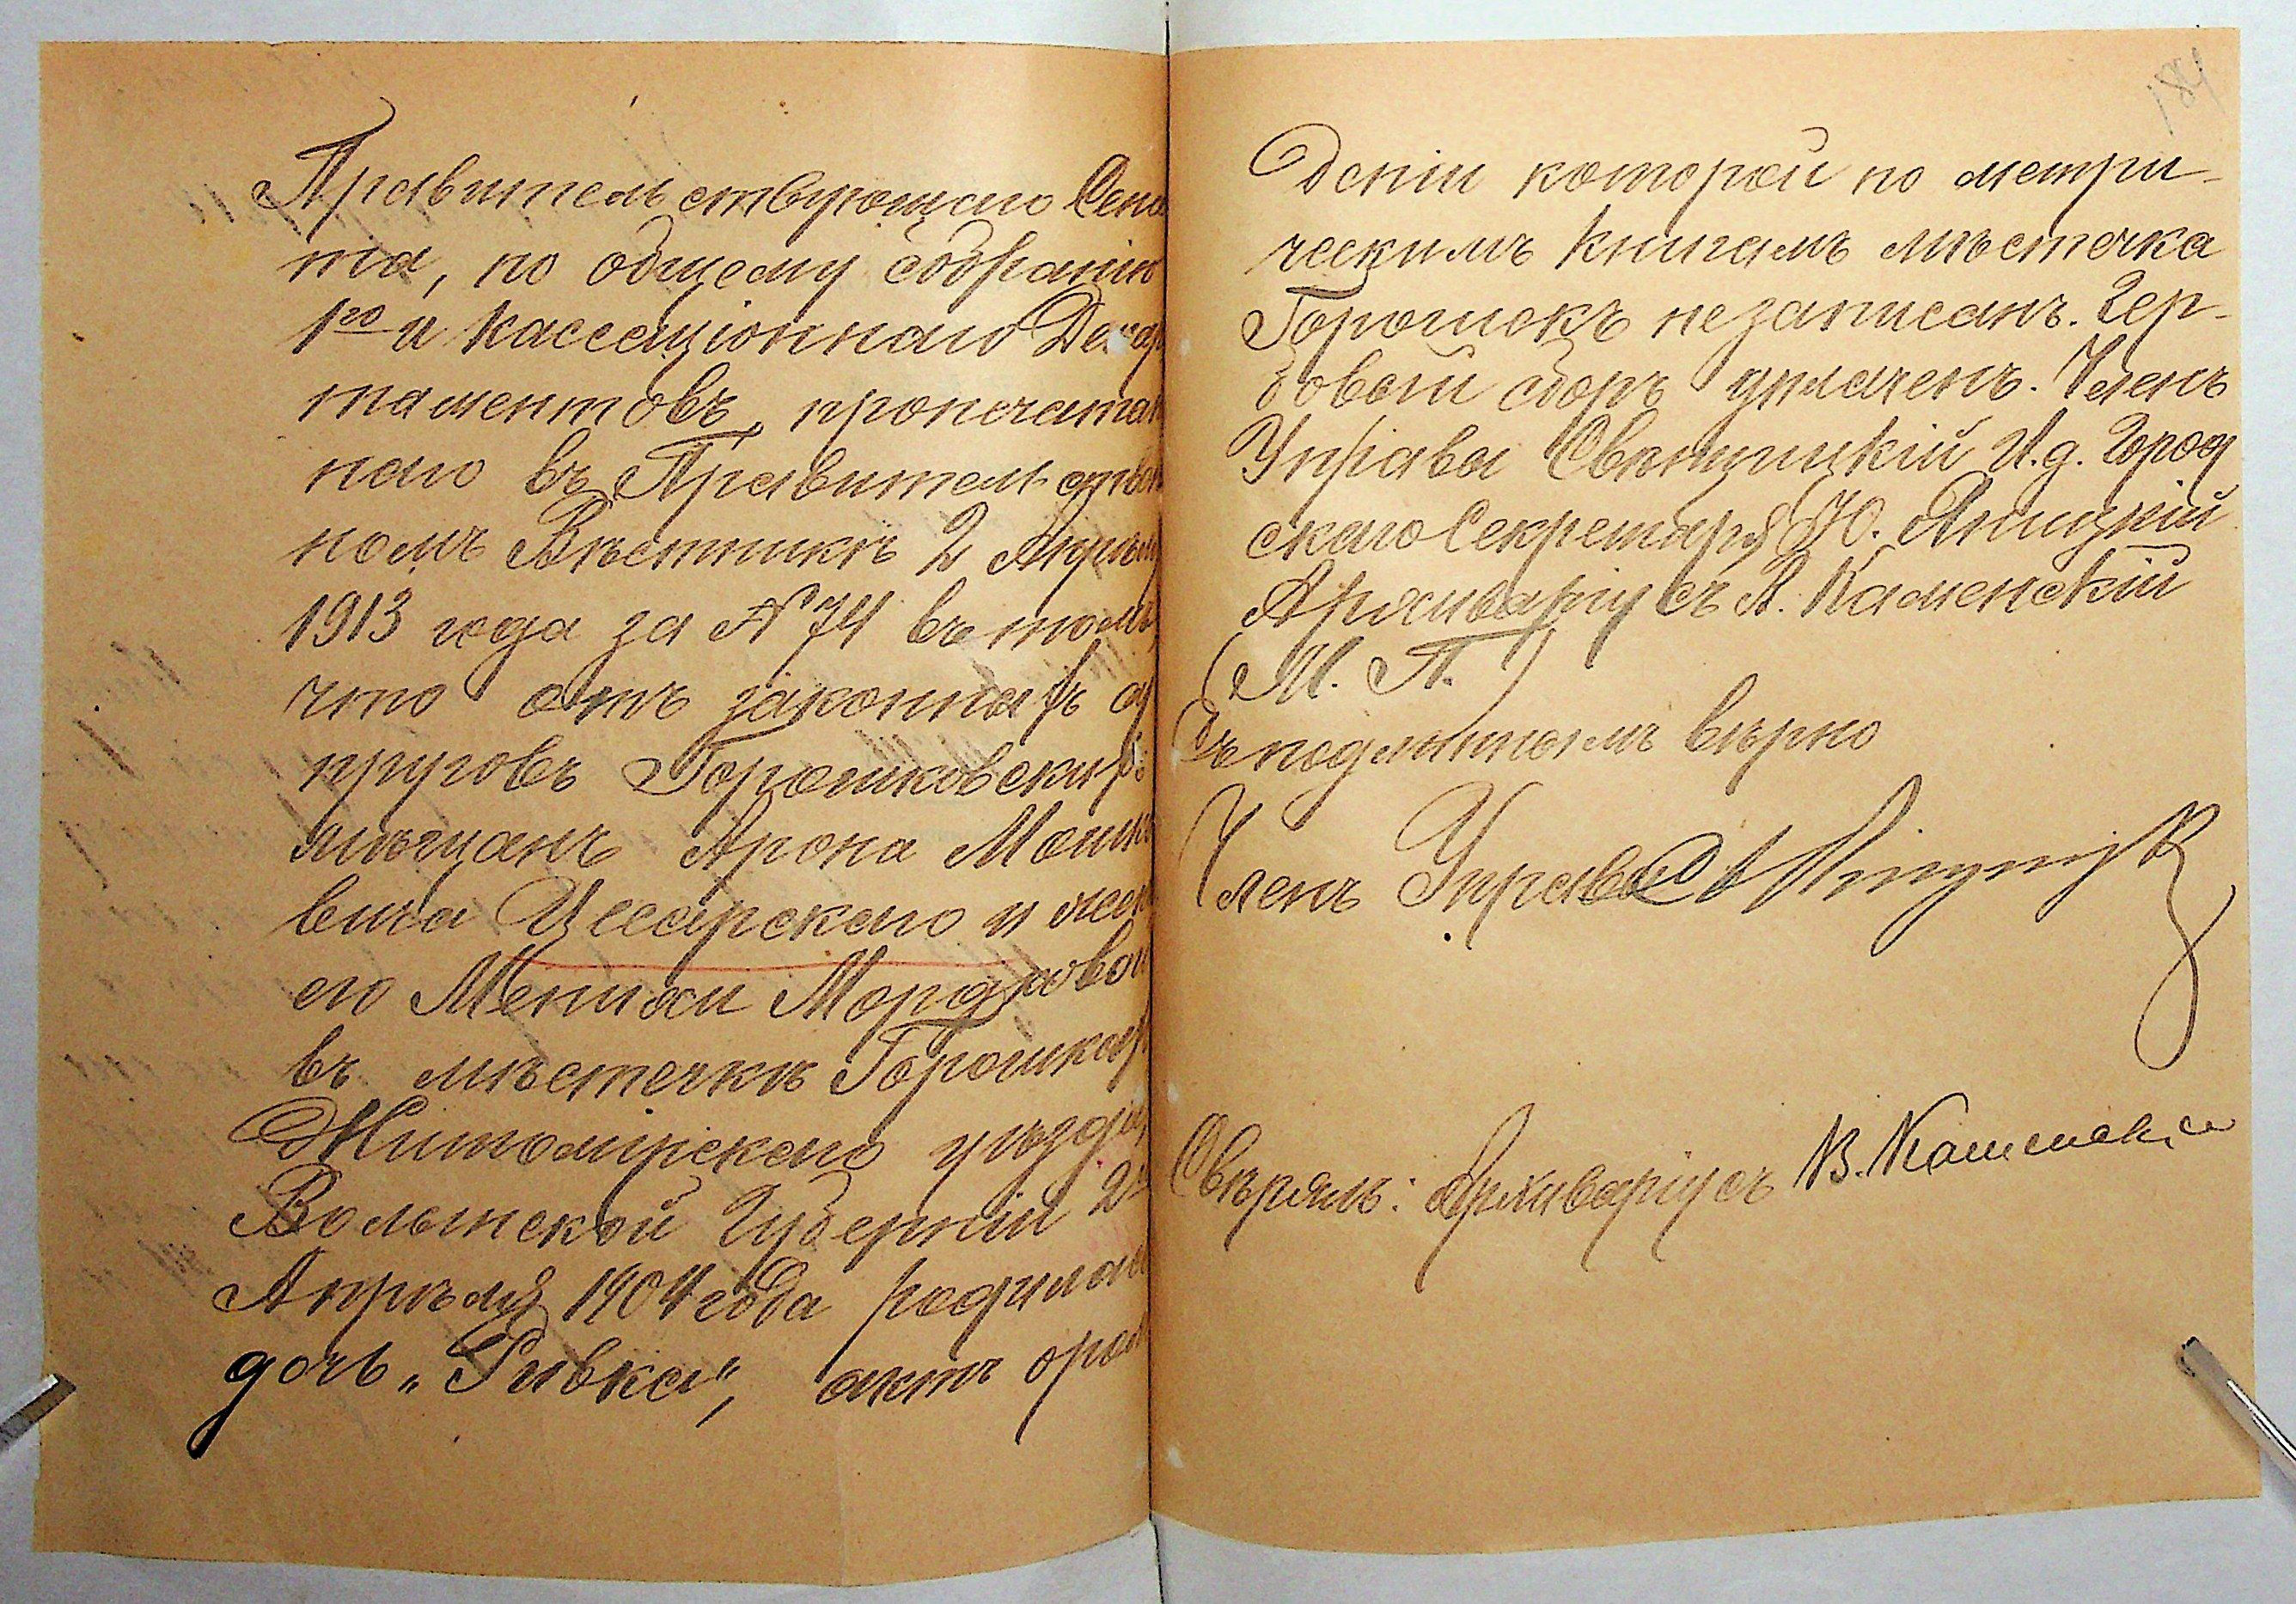 Правительствующаго Сена
та, по общему собранію
1го и Кассаціоннаго Депар
таментовъ, пропечатан
наго въ Правительствен
номъ Вѣстникѣ 2 Апрѣля
1913 года за № 74 въ томъ,
что отъ законныхъ су
пруговъ Горошковскихъ
мѣщанъ Арона Мошко
вича Цесарскаго и жены
его Менихи Мордковой
въ мѣстечкѣ Горошкахъ
Житомірскаго уѣзда,
Волынской Губерніи
Апрѣля 1904 года родилась
дочь „Ривка", актъ о рож
деніи которой по метри-
ческимъ книгамъ мѣстечка
Горошокъ незаписанъ. Гер-
бовый сборъ уплаченъ. Членъ
Управы И. д. Город
скаго Секретаря Ю. Яницкій
Архиваріусъ В. Каменскій
(М. П.)
Съ подлиннымъ вѣрно
Членъ Управы
Свѣрялъ: Архиваріусъ В. Каменскій
184